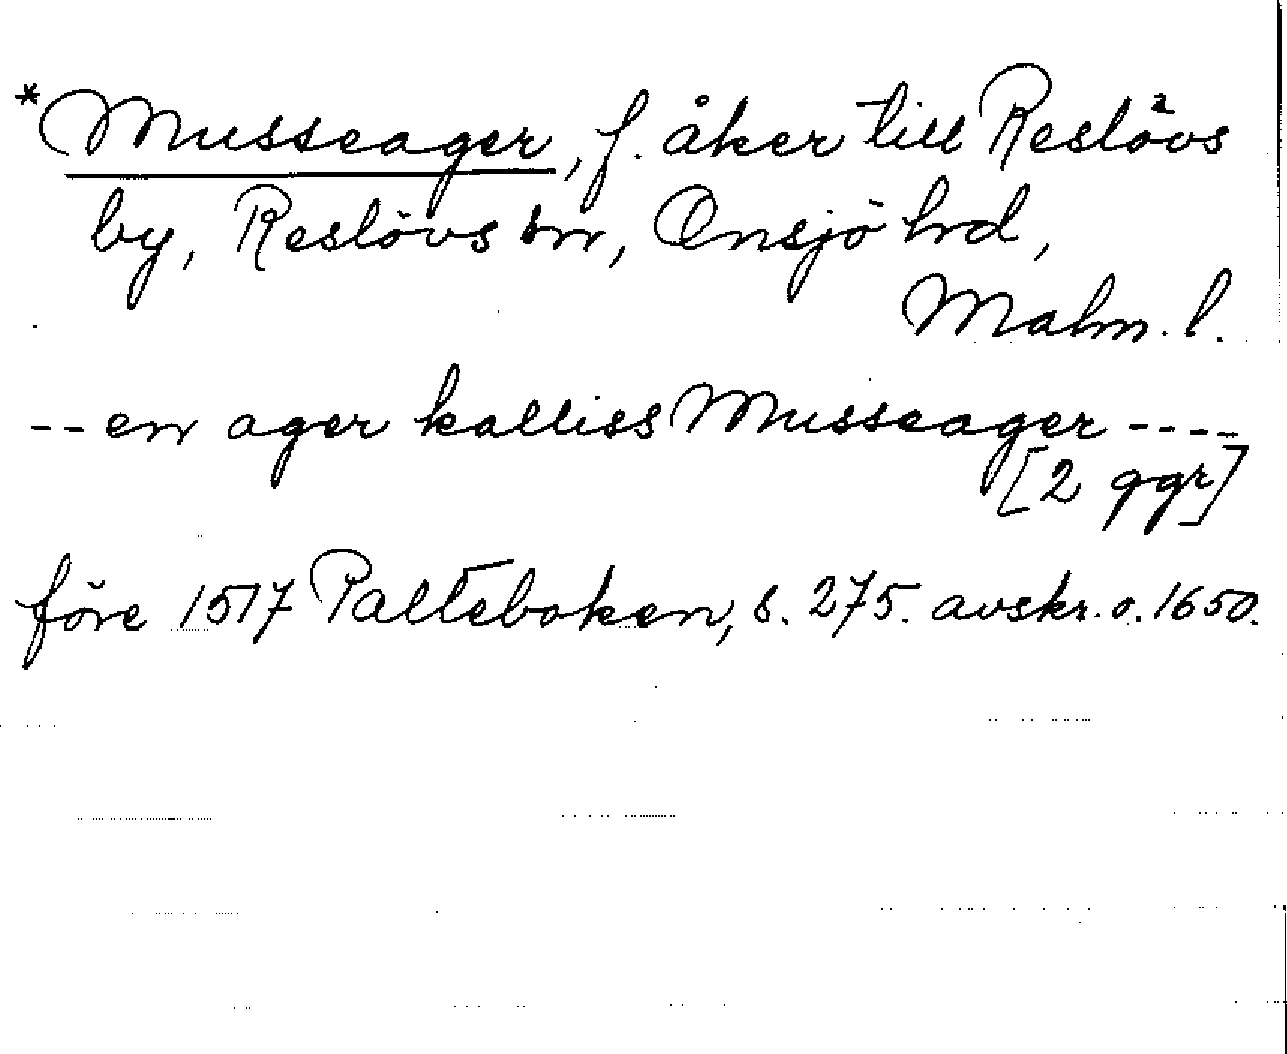 *Musseager, f. åker till Reslövs
by, Reslövs sn, Onsjö hd,
Malm. l.
-- en ager kalliss Musseager ----
[2 ggr]
före 1517 Palteboken, s. 275. avskr. o. 1650.